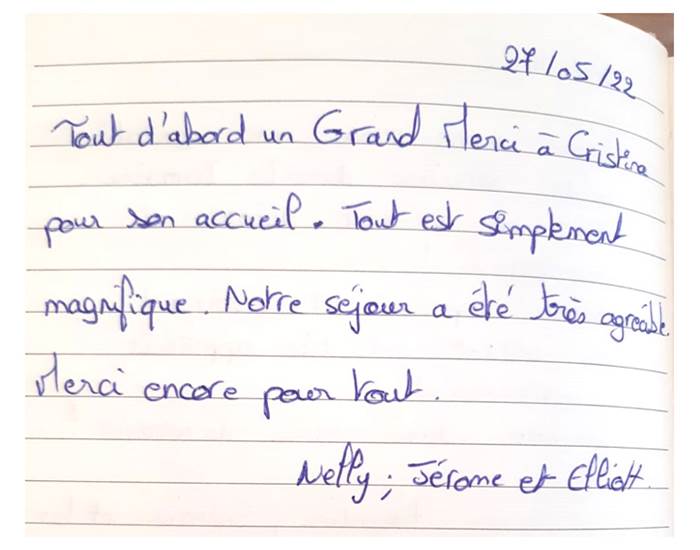 27/05/22
Tout d'abord un Grand Merci à Cristina
pour son accueil. Tout est simplement
magnifique. Notre séjour a été très agréable.
Merci encore pour tout.
Nelly; Jérome et Elliott.